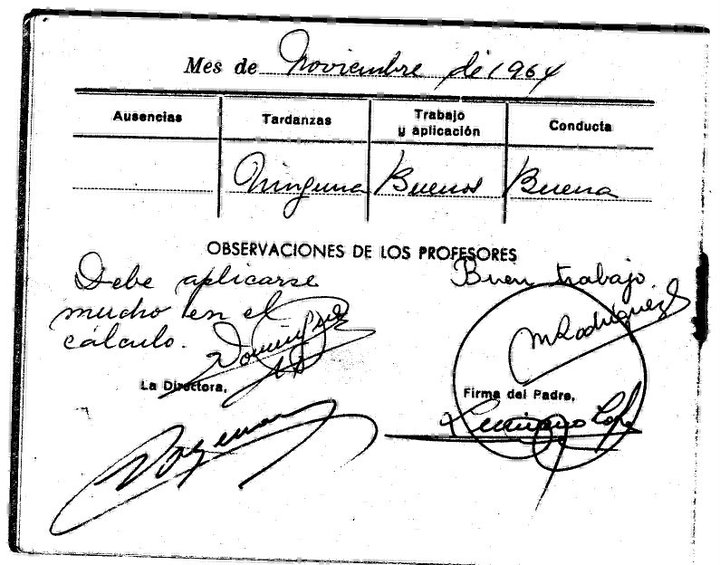 Mes de Noviembre de 1964
Ausencias Tardanzas Trabajo y aplicación Conducta
Ninguna Buenos Buena
OBSERVACIONES DE LOS PROFESORES
Debe aplicarse
mucho en el
cálculo.
Buen trabajo
M Rodríguez
La Directora,
Firma del Padre,